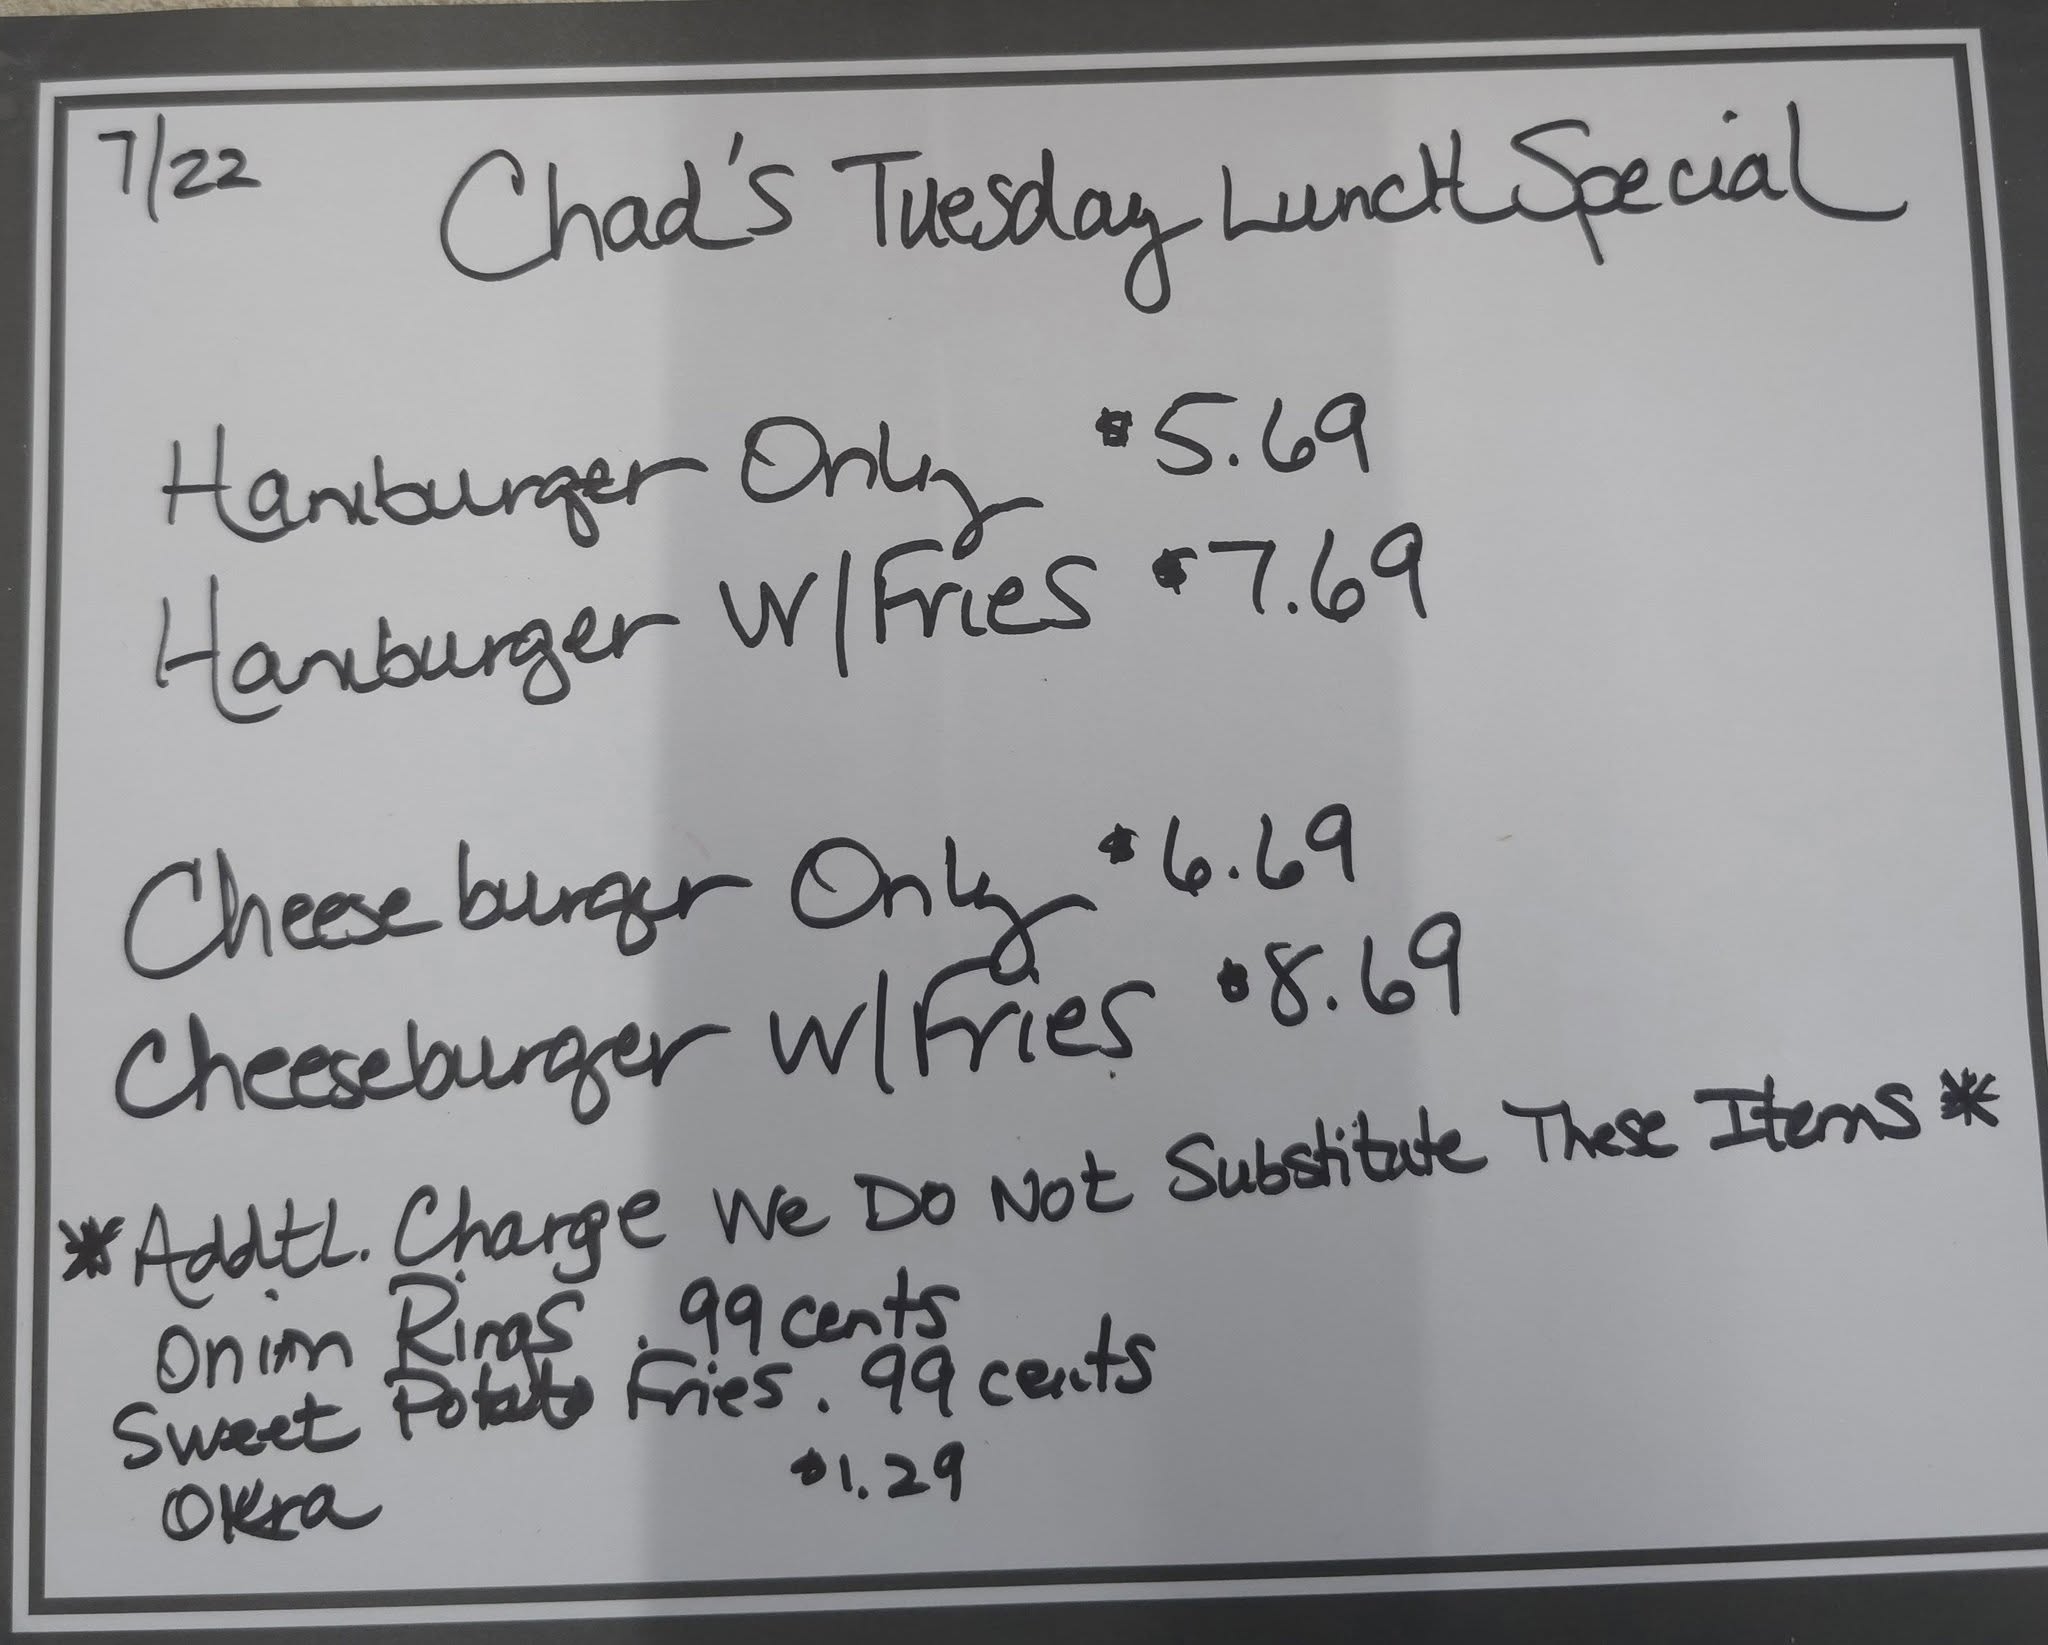 7/22
Chad's Tuesday Lunch Special
Hamburger Only $5.69
Hamburger W/Fries $7.69
Cheeseburger Only $6.69
Cheeseburger W/Fries $8.69
*Addtl. Charge We Do Not Substitute These Items*
Onion Rings .99 cents
Sweet Potato Fries .99 cents
Okra $1.29